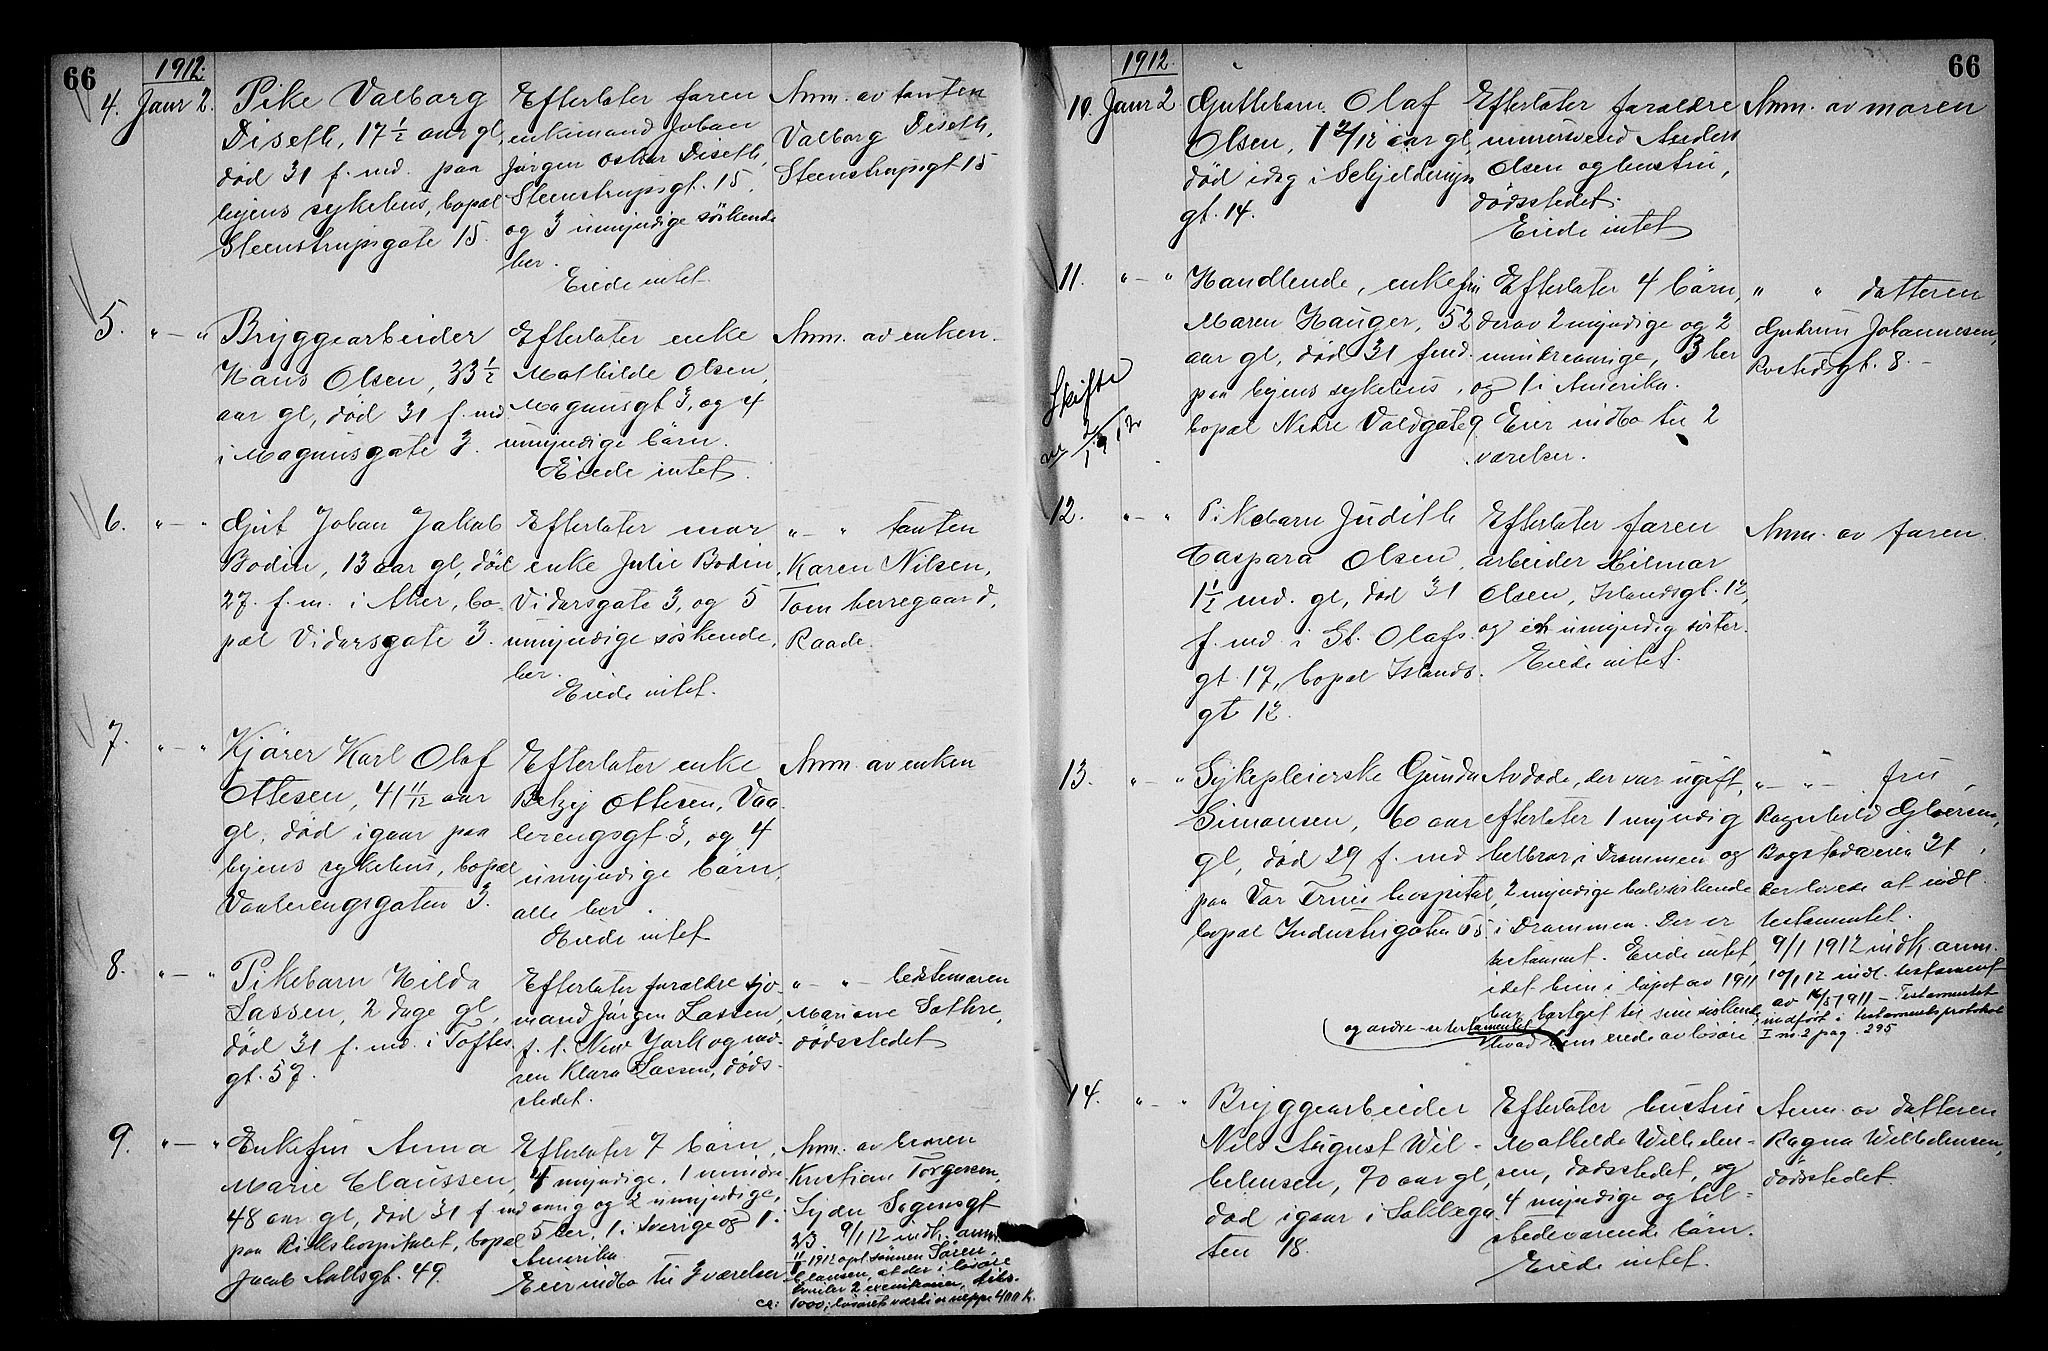 66
1912.
4. Janr 2.
Pike Valborg
Diseth, 17 1/2 aar gl,
död 31 f. md. paa
byens sykehus, bopæl
Steenstrupsgate 15.
Efterlater faren
enkemand Johan
Jörgen Oskar Diseth,
Steenstrupsgt. 15,
og 3 umyndige söskende
her.
Eiede intet.
Anm. av tanten
Valborg Diseth,
Steenstrupsgt 15
5. " — "
Bryggearbeider
Hans Olsen, 33 1/2
aar gl, död 31 f. md
i Magnusgate 3.
Efterlater enke
Mathilde Olsen,
Magnusgt 3, og 4
umyndige börn.
Eiede intet.
Anm. av enken.
6. " — "
Gut Johan Jakob
Bodin, 13 aar gl, död
27. f. m. i Aker, bo-
pæl Vidarsgate 3.
Efterlater mor
enke Julie Bodin,
Vidarsgate 3, og 5
umyndige söskende,
her.
Eiede intet.
" — " tanten
Karen Nilsen,
Tom herregaard,
Raade.
7. " — "
Kjörer Karl Olaf
Ottesen, 41 11/12 aar
gl, död igaar paa
byens sykehus, bopæl
Vaalerengsgaten 3.
Efterlater enke
Betzy Ottesen, Vaa-
lerengsgt 3, og 4
umyndige börn,
alle her.
Eiede intet
Anm. av enken
8. " — "
Pikebarn Hilda
Lassen, 2 dage gl,
död 31 f. md. i Toftes
gt. 57.
Efterlater forældre sjö-
mand Jörgen Lassen,
f. t. New York og mo-
ren Klara Lassen, döds-
stedet.
" — " bestemoren
Mariane Sæthre,
dödsstedet
9. " — "
Enkefru Anna
Marie Claussen,
48 aar gl, död 31 f md
paa Rikshospitalet, bopæl
Jacob Aallsgt. 49.
Efterlater 7 börn,
4 myndige, 1 mindre-
aarig og 2 umyndige,
5 her, 1 i Sverige og 1 i
Amerika
Eier indbo til 3 værelser
Anm. av broren
Kristian Torgersen,
Seyder Sogensgt
23. 9/1 12 indk. anm.
11/1 1912 opl. sönnen Sören
Clausen, at der i lösöre
ca: 1000; lösöret værdi er neppe 400 K.
66
1912.
10. Janr 2
Guttebarn Olaf
Olsen, 1 2/12 aar gl,
död idag i Schjelderups
gt. 14.
Efterlater forældre
murersvend Anders
Olsen og hustru,
dödsstedet.
Eiede intet
Anm. av moren
11. " — "
Skifte
Handlende, enkefru
Maren Hauger, 52
aar gl, död 31 f md.
paa byens sykehus,
bopæl Nedre Voldgate 9
Efterlater 4 börn,
derav 2 myndige og 2
mindreaarige, 3 her
og 1 i Amerika.
Eier indbo til 2
værelser.
" " datteren
Gudrun Johannesen,
Rostedsgt. 8.
12. " — "
Pikebarn Judith
Caspara Olsen,
1 1/2 md. gl, död 31
f. md i St. Olafs
gt. 17, bopæl Islands
gt 12.
Efterlater faren
arbeider Hilmar
Olsen, Islandsgt. 12,
og en umyndig söster.
Eiede intet.
Anm. av faren
13. " — "
Sykepleierske Gunda
Simonsen, 60 aar
gl, död 29 f. md
paa Vor Frues hospital,
bopæl Industrigaten 55
Avdöde, der var ugift,
efterlater 1 myndig
helbror i Drammen og
2 myndige halvsöskende
i Drammen. Der er
testament. Eiede intet,
idet hun i löpet av 1911
har bortgit til sine söskende
og andre i testamentet
hvad hun eiede av lösöre
" — " fru
Ragnhild Glöersen,
Bogstadveien 21,
der lovede at indl.
testamentet.
9/1 1912 indk. anm.
10/1 12 indl. testament
av 16/5 1911 — Testamentet
indfört i testamentsprotokol
I no 2 pag. 295
14. " — "
Bryggearbeider
Nils August Wil-
helmsen, 70 aar gl,
död igaar i Sukkega-
ten 18.
Efterlater hustru
Mathilde Wilhelm-
sen, dödsstedet, og
4 myndige og til-
stedeværende börn.
Eiede intet.
Anm. av datteren
Ragna Wilhelmsen,
dödsstedet